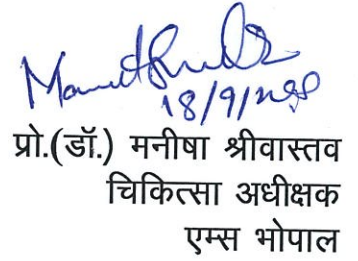 18/9/
प्रो.(डॉ.) मनीषा श्रीवास्तव
चिकित्सा अधीक्षक
एम्स भोपाल